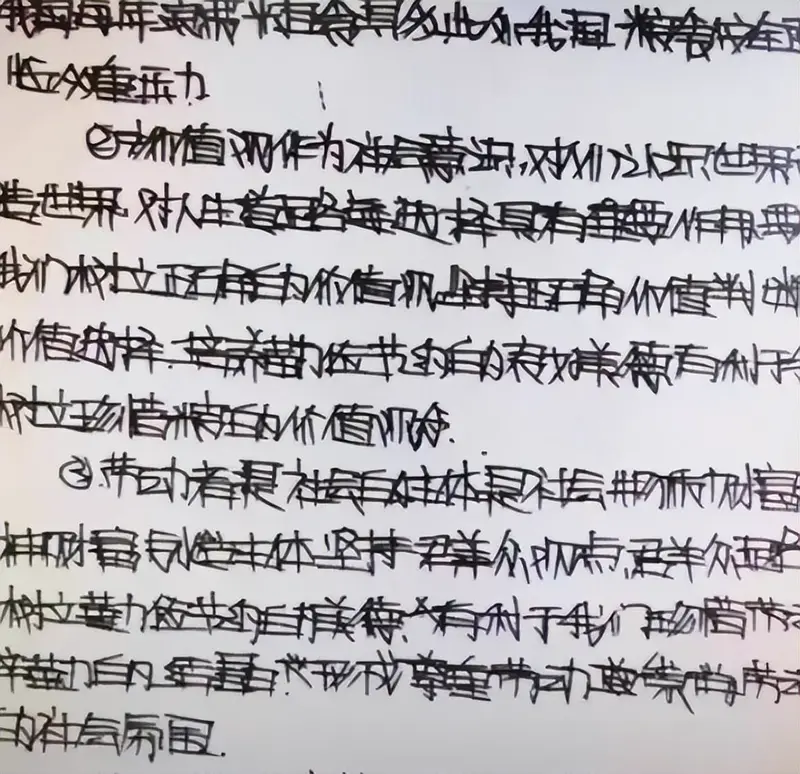 我国每年浪费粮食具多此外我国粮食安全
临众重压力
②价值观作为社会意识,对人们认识世界
造世界.对人生道路的选择具有重要作用.要
我们树立正确的价值观,坚持正确价值判断
价值选择.培养勤俭节约的良好美德有利于
树立珍惜粮食的价值观念.
③.劳动者是社会的主体是社会物质财富
神财富创造主体.坚持群众观点,群众路
树立勤俭节约的美德,有利于我们珍惜劳动
辛勤的结晶.形成尊重劳动 崇尚劳动
的社会氛围.